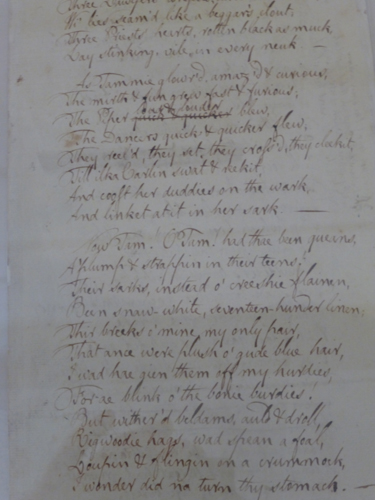 Three Lawyers
Wi' lies seam'd, like a beggar's clout,
Three Priests' hearts, rotten black as muck
Lay stinking, vile, in every neuk —
As Tammie glowr'd, amaz'd & curious,
The mirth & fun grew fast & furious;
loud & louder
The Piper quick & quicker blew,
The Dancers quick & quicker flew,
They reel'd, they set, they cross'd, they cleekit,
Till ilka Carlin swat & reekit,
And coost her duddies on the wark,
And linket at it in her sark —
Now Tam! O Tam! had thae been queans,
A' plump & strappin in their teens!
Their sarks, instead o' creeshie flainen,
Been snaw-white, seventeen-hunder linen;
Thir breeks o' mine, my only pair,
That ance were plush o' gude blue hair,
I wad hae gien them off my hurdies,
For ae blink o' the bonie burdies!
But wither'd beldams, auld & droll,
Rigwoodie hags, wad spean a foal,
Loupin & flingin on a crummock,
I wonder did na turn thy stomach. —